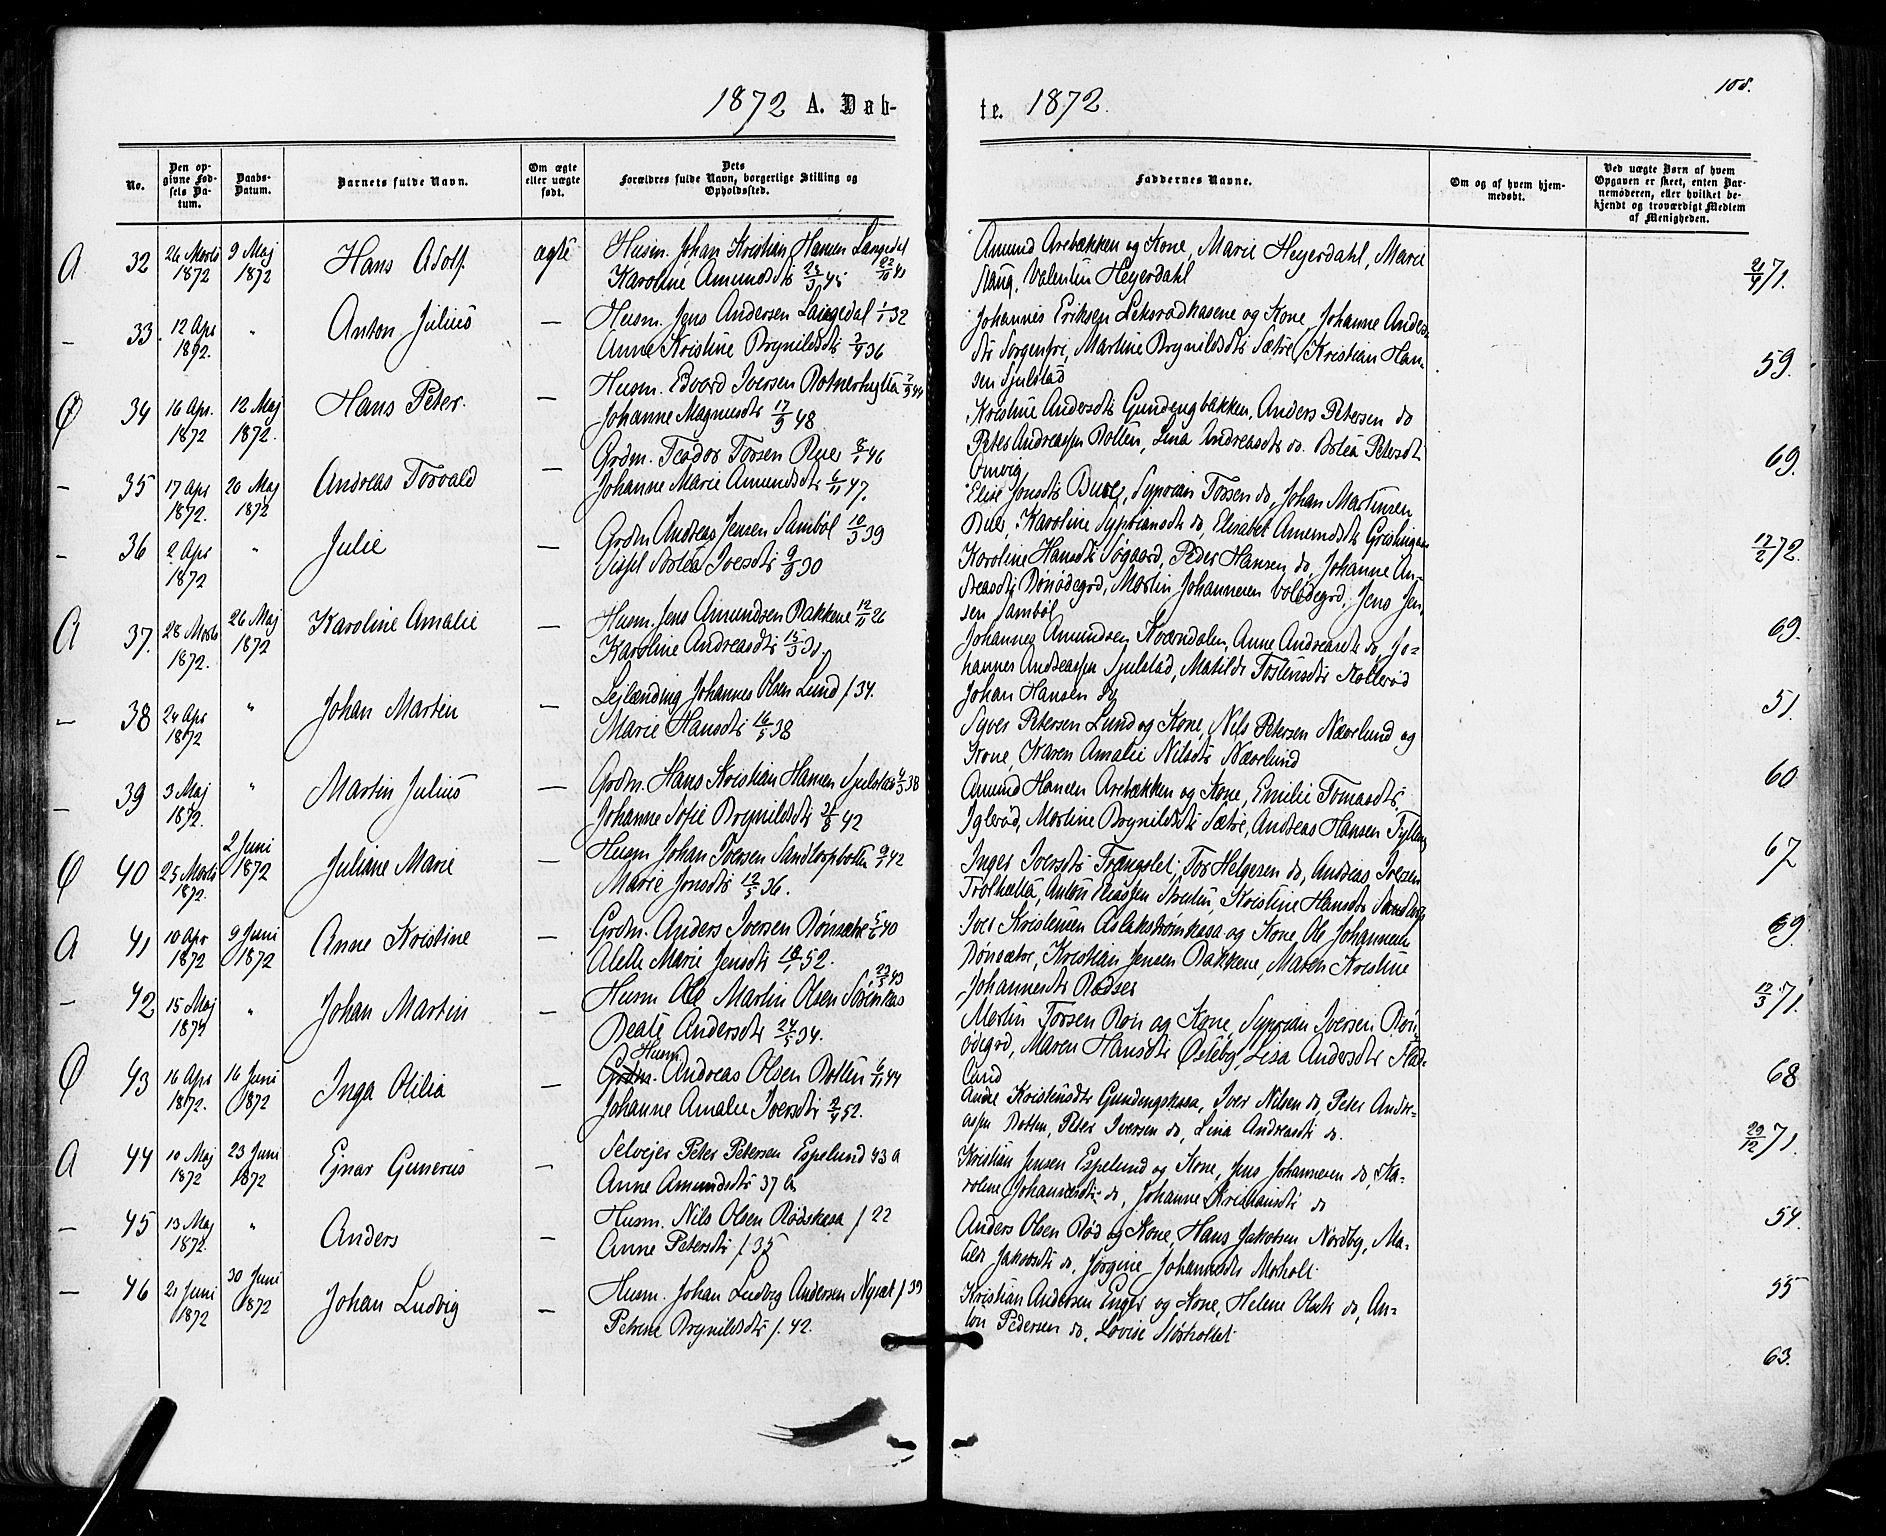 108.
1872 A. Døb-
te. 1872.
No.
Den op-
givne Fød-
sels Da-
tum.
Daabs-
Datum.
Barnets fulde Navn.
Om ægte
eller uægte
født.
Dets
Forældres fulde Navn, borgerlige Stilling og
Opholdssted.
Faddernes Navne.
Om og af hvem hjem-
medøbt.
Ved uægte Børn af hvem
Opgaven er skeet, enten Bar-
nemøderen, eller hvilket be-
kjendt og troværdigt Medlem
af Menigheden.
A 32 26 Marts 1872 9 Maj 1872 Hans Adolf ægte
Husm. Johan Kristian Hansen Langedal 22/11 41
Karoline Amundsdtr
Amund Arebækken og Kone, Marie Heyerdahl, Marie
Haug, Valentin Heyerdahl
21/4 71.
– 33. 12 Apr 1872. " Anton Julius —
Husm. Jens Andersen Langedal 1/1 32
Anne Kristine Brynildsdtr 2/9 36
Johannes Eriksen Leksrødkasene og Kone, Johanne Anders-
dtr Sorgenfri, Martine Brynildsdtr Sætre, Kristian Han-
sen Sjulstad
59.
Q 34 16 Apr. 1872 12 Maj 1872. Hans Peter. —
Husm. Edvard Iversen
Johanne Magnusdtr 17/9 48
Kristine Andersdtr Gundengbakken, Anders Petersen do
Peter Andreassen Botten, Lina Andreasdtr do. Petersdtr
69.
– 35 17 Apr 1872. 20 Maj 1872 Andreas Torvald —
Grdm. Teodor Torsen Buer 46
Johanne Marie Amundsdtr 6/11 47.
Elise Jensdtr Buer, Syprian Torsen do, Johan Martinsen
Buer, Karoline Sypriansdtr do, Elisabet Amundsdtr
12/2 72.
– 36 2 Apr 1872 " Julie —
Grdm Andreas Jensen Sambøl 10/3 39
Sissel Iversdtr 9/9 30
Karoline Hansdtr Søgaard, Peder Hansen do, Johanne An-
dreasdtr Bønødegrd, Martin Johannesen Jens Jen-
sen Sambøl
69.
A 37. 28 Marts 1872. 26 Maj 1872 Karoline Amalie —
Husm. Jens Amundsen Bakkene 12/11 26
Karoline Andreasdtr
Johannes Amundsen Kværndalen, Anne Andreasdtr do, Jo-
hannes Andreassen Sjulstad, Matilde Torstensdtr Kollerød
Johan Hansen
51.
– 38 24 Apr 1872 " Johan Martin —
Lejlænding Johannes Olsen Lund f 34.
Marie Hansdtr 16/5 38
Syver Petersen Lund og Kone, Nils Petersen Næverlund og
Kone, Karen Amalie Nilsdtr Næverlund
60
– 39 3 Maj 1872. " Martin Julius —
Grdm. Hans Kristian Hansen Sjulstad 38
Johanne Sofie Brynildsdtr 42
Amund Hansen Arebækken og Kone, Emilie Tomasdtr
Iglerød, Martine Brynildsdtr Sætre, Andreas Hansen
67
Q 40 25 Marts 1872. 2 Juni 1872 Juliane Marie —
Husm Johan Iversen Sandtorpbotten 42
Marie Jonsdtr 12/5 36.
Inger Iversdtr Trængslet, Tor Helgesen do, Andreas Iversen
Kristine Hansdtr
69.
A 41 10 Apr 1872 9 Juni 1872 Anne Kristine —
Grdm. Anders Iversen Bønsætre 40
Alette Marie Jensdtr 52.
Iver Kristensen Aslakstrømkasa og Kone, Ole Johannesen
Bønsætre, Kristian Jensen Bakkene, Maren Kristine
Johannesdtr Rødser
12/3 71.
– 42 15 Maj 1872 " Johan Martin —
Husm Ole Martin Olsen
Beate Andersdtr 24/5 34.
Martin Torsen Bøn og Kone, Syprian Iversen Bøn-
ødegrd, Maren Hansdtr Østeby, Lisa Andersdtr Flad-
lund
68
Q 43 16 Apr 1872. 16 Juni 1872 Inga Otilia —
Husm. Andreas Olsen Botten 6/11 44
Johanne Amalie Iversdtr 52.
Kristensdtr Gundengskasa, Iver Nilsen do, Peter Andre-
assen Botten, Peter Iversen do, Lina Andreasdtr do.
29/12 71.
A 44 10 Maj 1872 23 Juni 1872 Ejnar Gunerus —
Selvejer Peter Petersen Espelund 43
Anne Amundsdtr 37
Kristian Jensen Espelund og Kone, Jens Johannesen do, Ka-
roline Johannesdtr do, Johanne Kristiansdtr do
54.
– 45 13 Maj 1872. " Anders —
Husm. Nils Olsen Rødskasa f 22
Anne Petersdtr f. 35
Anders Olsen Rød og Kone, Hans Jakobsen Nordby, Ma-
tilde Jakobsdtr do, Jørgine Johannesdtr Morholt.
55
– 46 21 Juni 1872 30 Juni 1872 Johan Ludvig —
Husm. Johan Ludvig Andersen f 39
Petrine Brynildsdtr f. 42.
Kristian Andersen Enger og Kone, Helene Olsdtr do, An-
ton Pedersen do, Lovise
63.